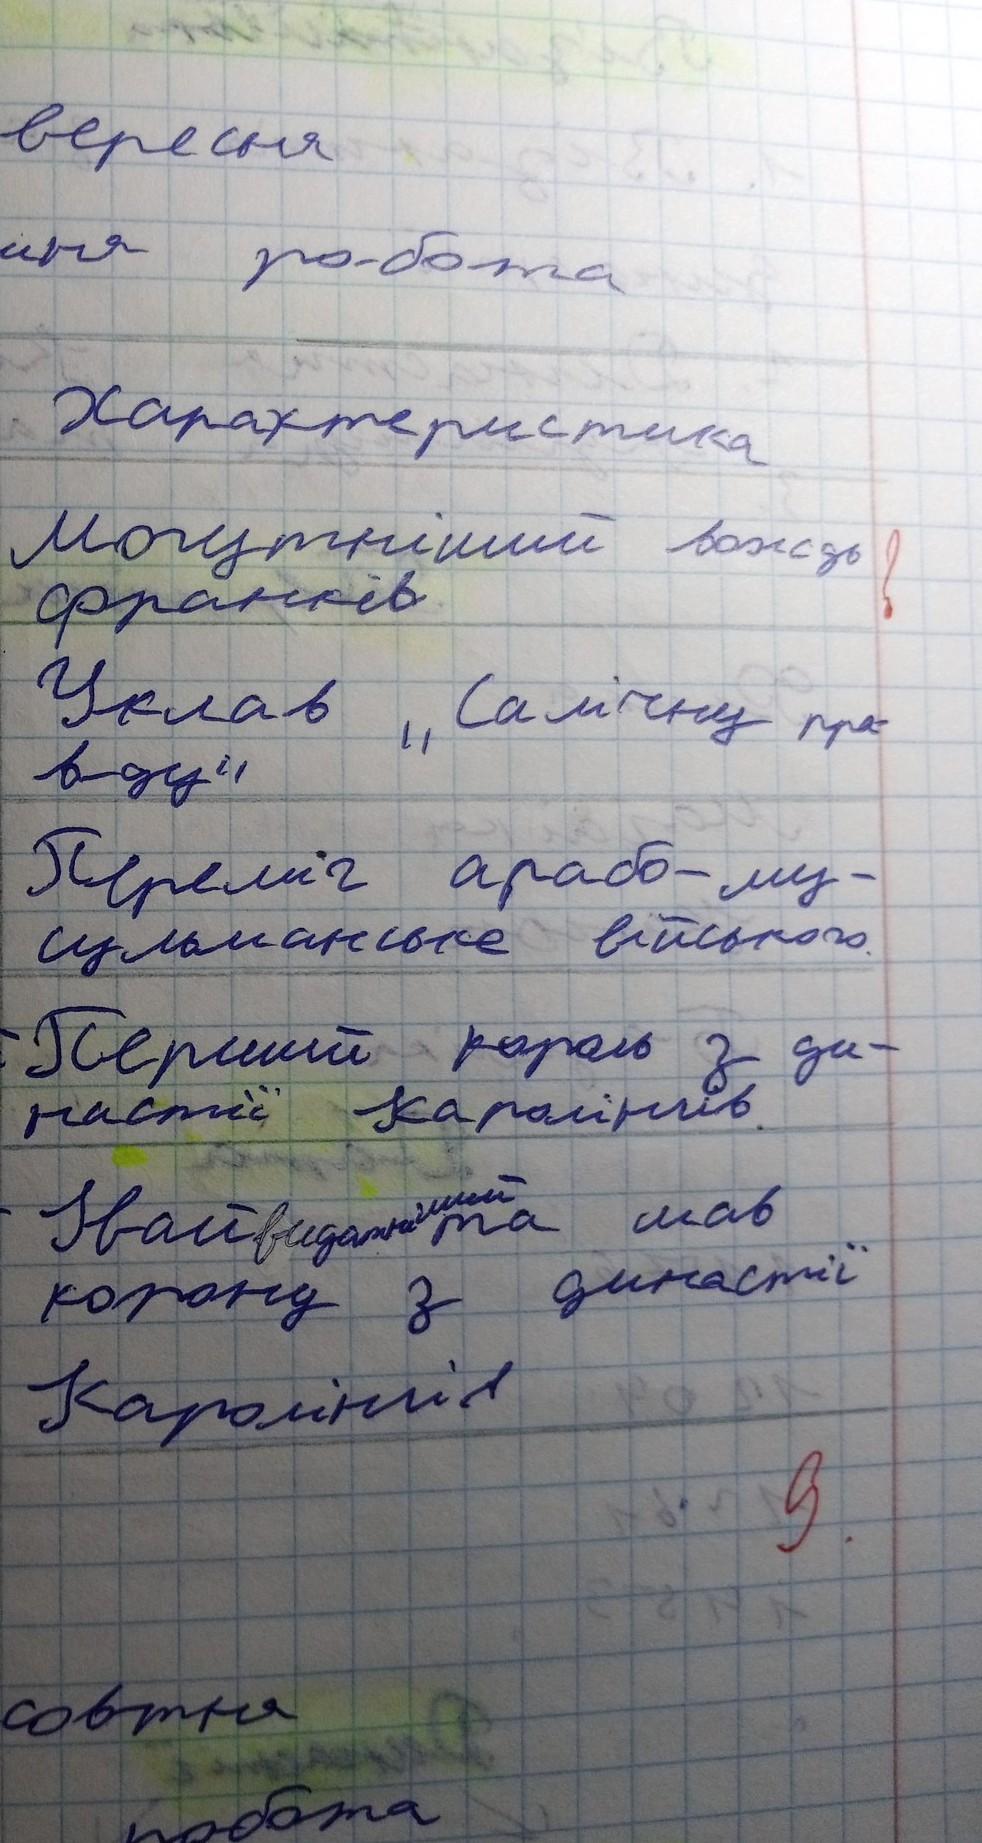 вересня
шня робота
Характеристика
Могутніший вождь
франків
Уклав „Салічну пра-
вду"
Переміг арабо-му-
сульманське війського.
Перший король з ди-
настії Каролінгів.
видатніший та мав
корону з династії
Каролінгів
9.
овтня
робота